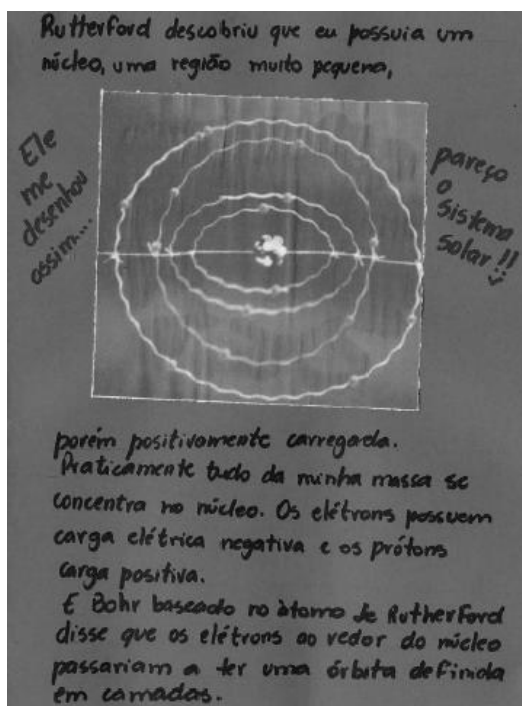 Rutterford descobriu que eu possuia um
núcleo, uma região muito pequena,
Ele
me
desenhou
assim...
pareço
o
Sistema
Solar!!
porém positivamente carregada.
Praticamente tudo da minha massa se
concentra no núcleo. Os elétrons possuem
carga elétrica negativa e os prótons
carga positiva.
E Bohr baseado no átomo de Rutherford
disse que os elétrons ao redor do núcleo
passariam a ter uma órbita definida
em camadas.